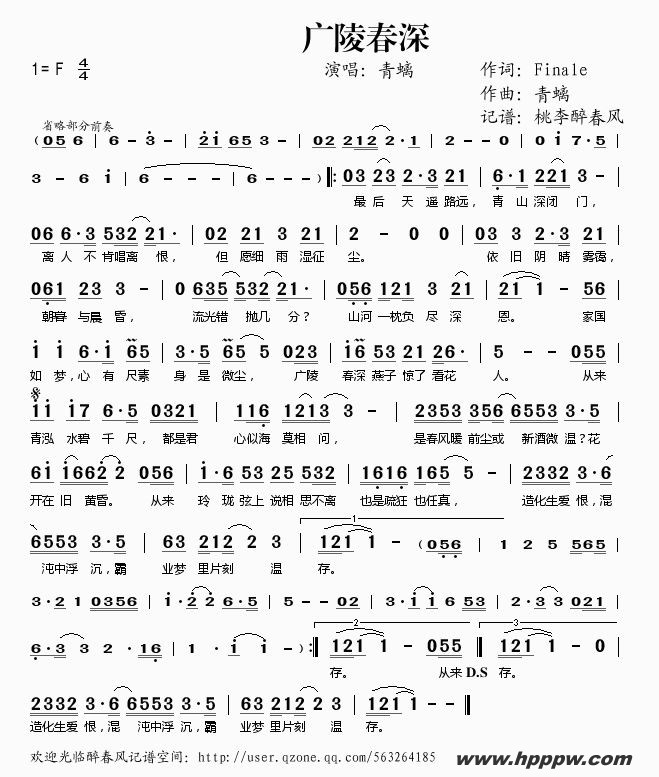 广陵春深
1=F 4/4 演唱：青螭 作词：Finale
作曲：青螭
记谱：桃李醉春风
省略部分前奏
(056 | 6-3- | 21 653 | 02 212 2·1 | 2--0 | 01 7·5 |
3-61 | 6--- | 6---) ‖: 03 23 2·3 21 | 6·1 221 3- |
最后 天遥路远，青山深闭门，
06 6·3 532 21· | 03 23 21 21 | 2-00 | 03 23 2·3 21 |
离人不肯唱离恨，但愿细雨湿征尘。依旧阴晴雾霭，
061 23 3- | 0 635 532 21· | 056 121 3 21 | 21 1-56 |
朝暮与晨昏，流光错抛几分？山河一枕负尽深恩。家国
1 1 6·1 65 | 3·5 65 5 023 | 16 53 21 26· | 5--055 |
如梦，心有尺素身是微尘，广陵春深燕子惊了看花人。从来
11 17 6·5 0321 | 116 1213 3- | 2353 356 6553 3·5 |
青泓水碧千尺，都是君心似海莫相问，是春风暖前尘或新酒微温？花
61 1662 2 056 | 1·6 53 25 532 | 1616 165 5- | 2332 3·6 |
开在旧黄昏。从来玲珑弦上说相思不离也是疏狂也任真，造化生爱恨，混
6553 3·5 | 63 212 2 3 | 121 1-(056 | 12 5 565 |
沌中浮沉，霸业梦里片刻温存。
3·2 1 0356 | 1·2 2 6·5 | 5--02 | 3·1 1 653 | 2·3 3 021 |
6·3 32 2·16 | 1·1 6 1-) :‖ 121 1-055 ‖ 121 1-0 |
存。从来 D.S 存。
2332 3·6 6553 3·5 | 63 212 2 3 | 121 1-- ‖
造化生爱恨，混沌中浮沉，霸业梦里片刻温存。
欢迎光临醉春风记谱空间：http://user.qzone.qq.com/563264185
www.hpppw.com